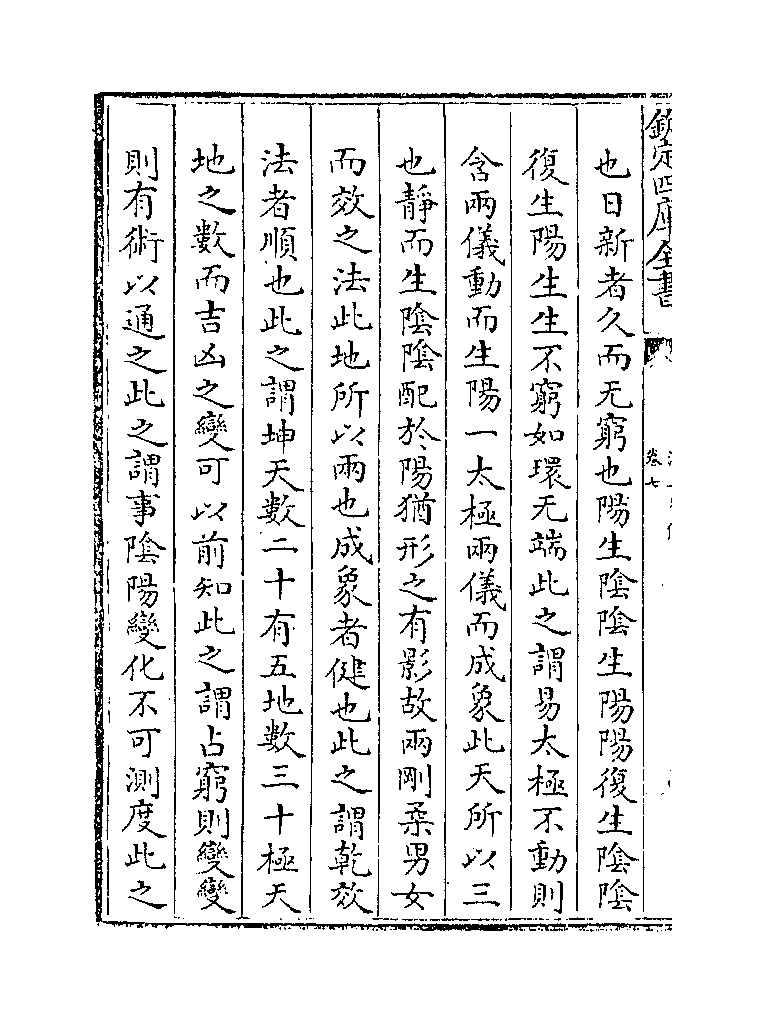 欽定四庫全書
卷七
也日新者久而无窮也陽生陰陰生陽陽復生陰陰
復生陽生生不窮如環无端此之謂易太極不動則
含兩儀動而生陽一太極兩儀而成象此天所以三
也靜而生陰陰配於陽猶形之有影故兩剛柔男女
而效之法此地所以兩也成象者健也此之謂乾效
法者順也此之謂坤天數二十有五地數三十極天
地之數而吉凶之變可以前知此之謂占窮則變變
則有術以通之此之謂事陰陽變化不可測度此之